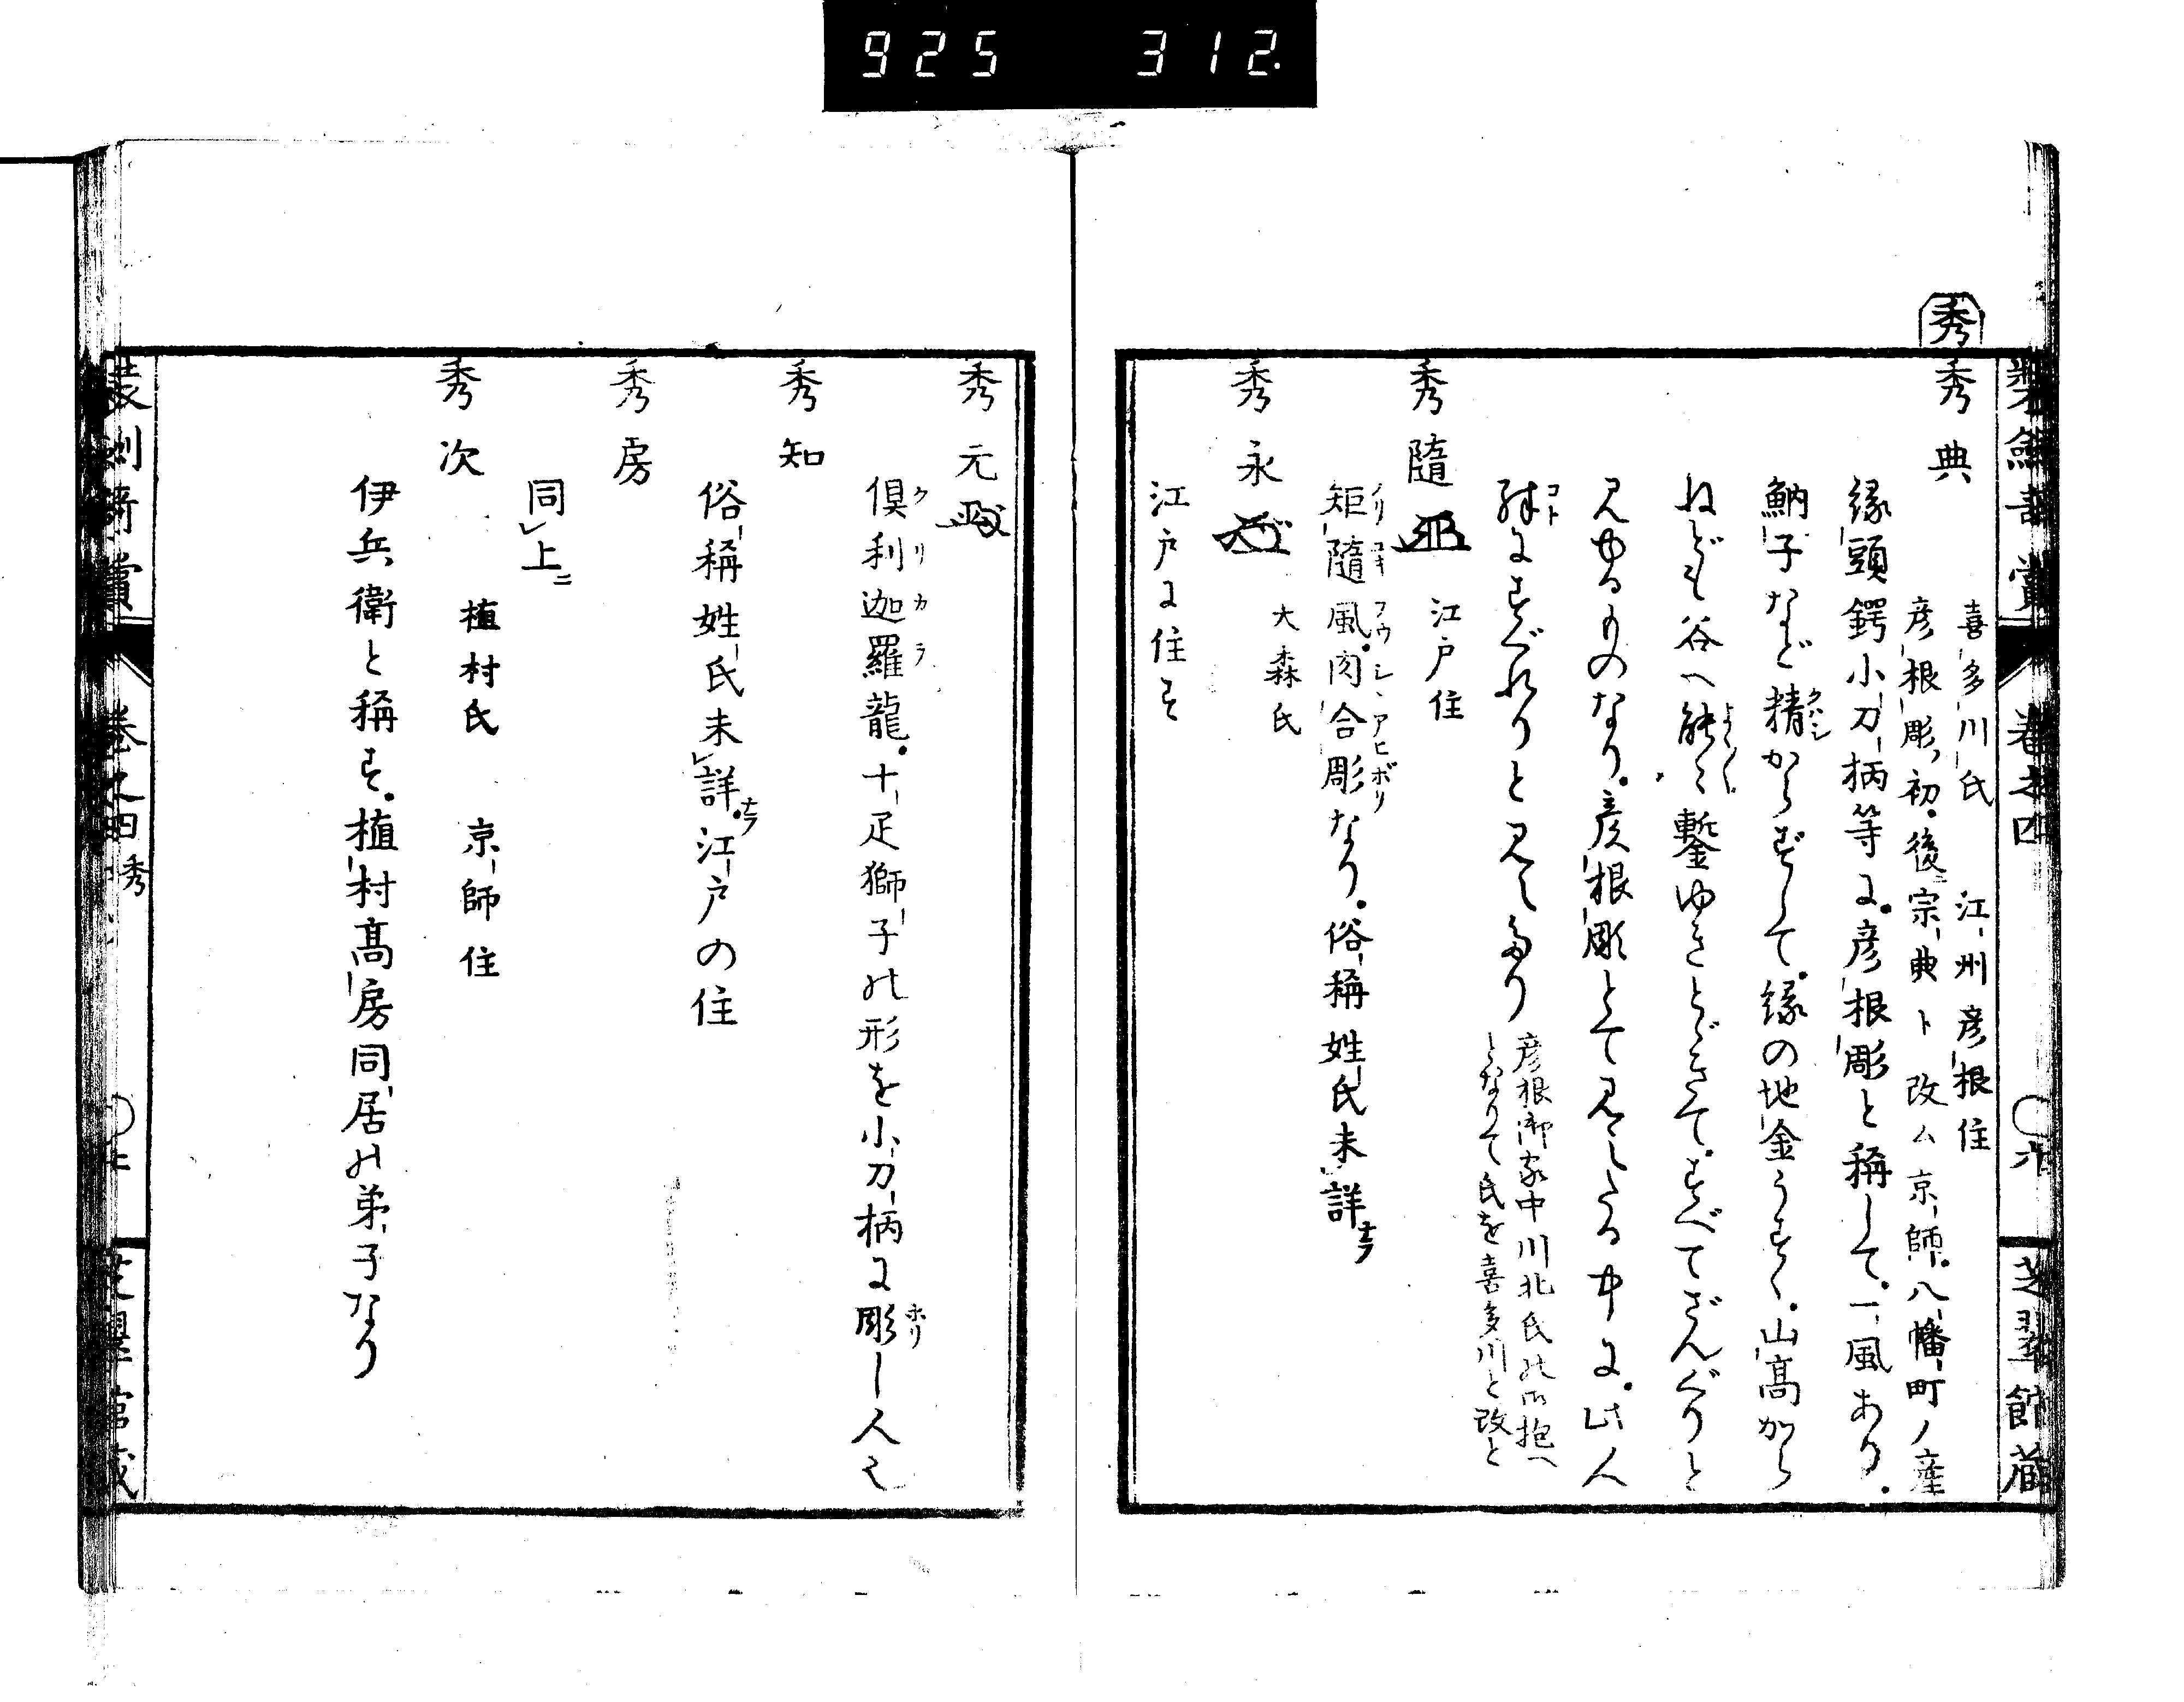 925 312.
秀
秀典
喜多川氏 江州彦根住
彦根彫初後ニ宗典ト改ム京師八幡町ノ産
縁頭鍔小刀柄等に彦根彫と称して一風あり
魶子など精からずして縁の地金うすく山高から
ねども谷へ能々鏨ゆきとゞきてすべてざんぐりと
見ゆるものなり彦根彫とて見えしたる中に此人
殊にすぐれりと見えたり
彦根御家中川北氏の御抱へ
となりて氏を喜多川と改と
秀随
江戸住
矩随風肉合彫なり俗称姓氏未詳ナラ
秀永
大森氏
江戸に住す
秀元
倶利迦羅龍十疋獅子の形を小刀柄に彫し人也
秀知
俗称姓氏未詳ナラ江戸の住
秀房
同上ニ
秀次
植村氏 京師住
伊兵衛と称す植村高房同居の弟子なり
巻之四 秀